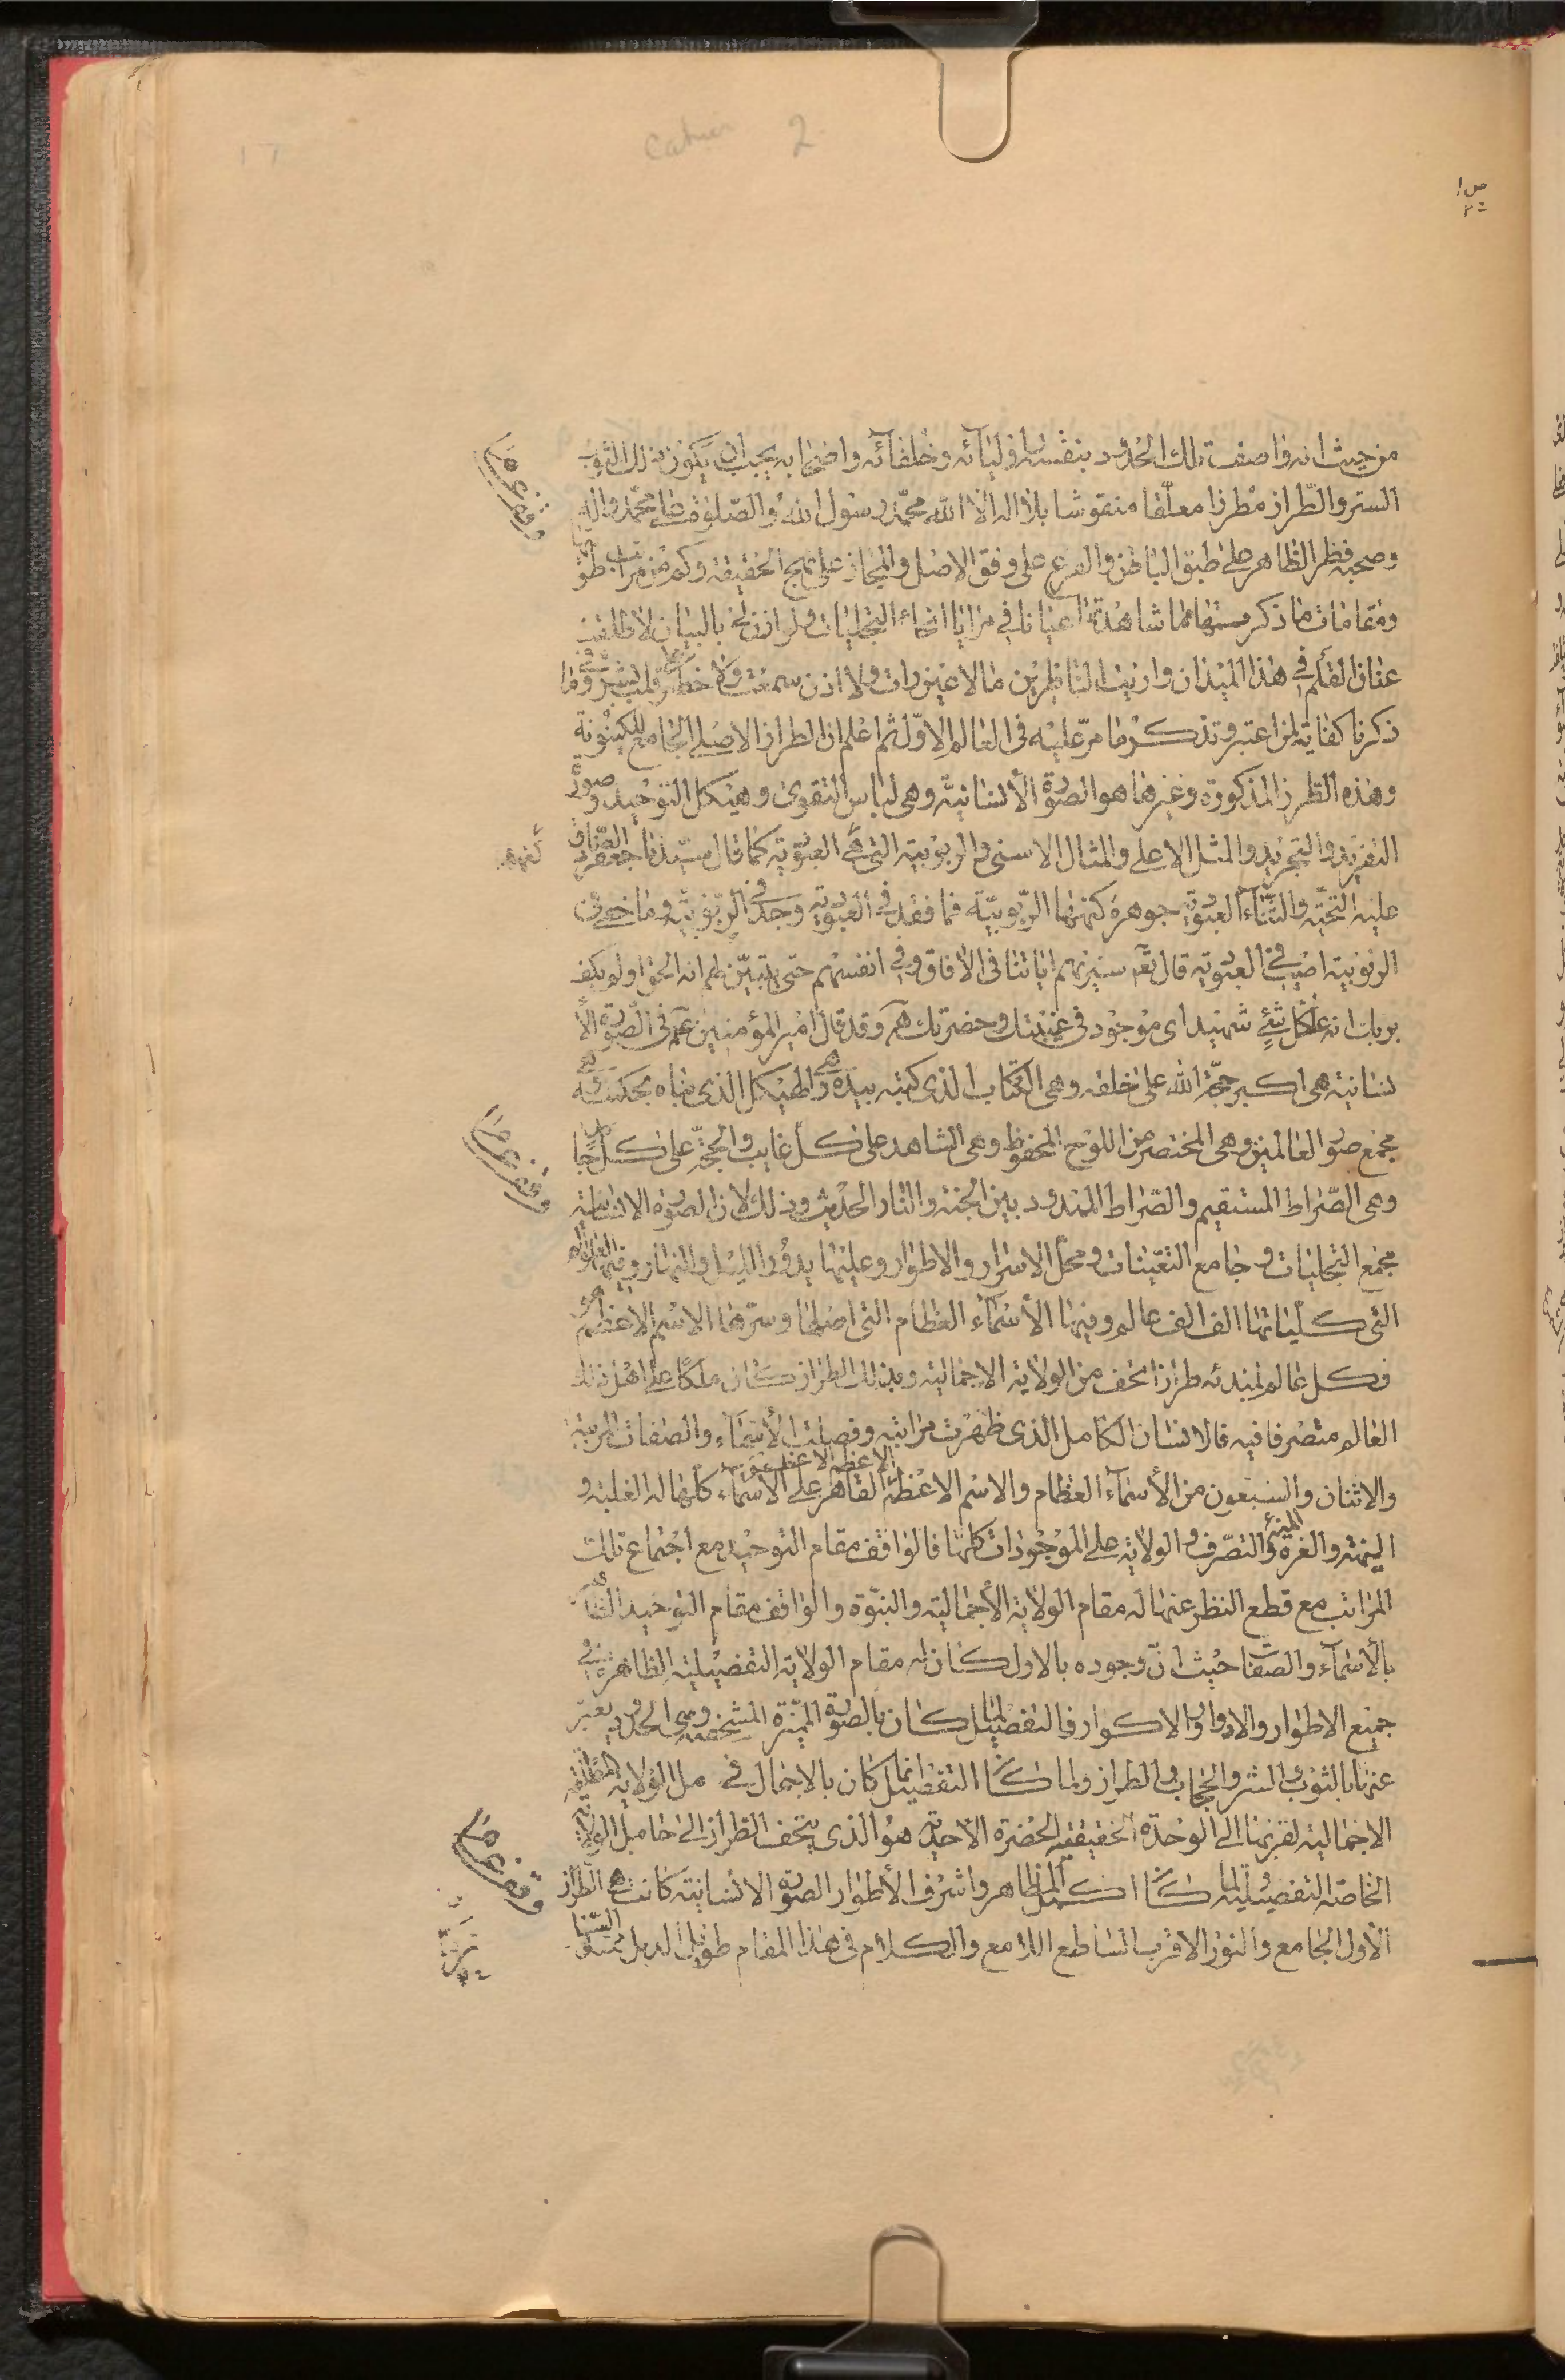 Cahier 2
ص ا
من حيث انه واصف تلك الحدود بنفسه او لياٰئه وخلفاٰئه واضحابه يجب ان يكون ذلك الثوب
الستر والطّراز مطرزا معلّما منقوشا بلا اله الّا اللّه محمّد رسول اللّه والصّلوة على محمّد واله
وصحبه فظر الظاهر على طبق الباطن والفرع على وفق الاصل والمجاز على نهج الحقيقة وكم من مراتب طو
ومقامات ما ذكر منها مما شاهدتها اعيانا في مرايا انحاء التجليات ولو اذن لى بالبيان لاطلقت
عنان القلم في هذا الميدان واريت الناظرين ما لا عين رات ولا اذن سمعت ولا خطر على قلب بشر وفى ما
ذكرنا كفاية لمن اعتبر وتذكر ما مرّ عليه فى العالم الاوّل ثم اعلم ان الطراز الاصلى الجامع للكينونة
وهذه الطرز المذكورة وغيرها هو الصورة الأنسانيّة وهى لباس التقوى وهيكل التوحيد وصورة
التفريد والتجريد والمثل الاعلى والمثال الاسنى والربوبية التى هى العبوديّة كما قال سيّدنا جعفر الصّادق
عليه التحيّة والثّناء العبوديّة جوهرة كنهها الربّوبيّة فما فقد في العبوديّة وجد فى الربّوبيّة وما خفى فى
الربوبية اصيب فى العبوديّة قال تعٓ سنريهم اياتنا فى الأفاق وفى انفسهم حتى يتبيّن لهم انه الحق اولم يكف
بربك انه على كل شئ شهيد اى موجود فى غيبتك وحضرتك وقد قال امير المؤمنين عٓم فى الصّورة الأ
نسانية هى اكبر حجّة اللّه على خلقه وهى الكتاب الذى كتبه بيده وهى الهيكل الذى بناه بحكمته وهى
مجمع صور العالمين وهى المختصر من اللوح المحفوظ وهى الشاهد على كلّ غايب والحجّة على كلّ جاحد
وهى الصّراط المستقيم والصّراط الممدود بين الجنة والنار الحديث وذلك لان الصورة الانسانية
مجمع التجليات وجامع التعّينات ومحلّ الاسرار والاطوار وعليها يدور الليل والنهار وفيها العوالم
التى كلّياتها الف الف عالم وفيها الأسماء العظام التى اصلها وسرّها الاسم الاعظم
وكل عالم لمبدئه طرازا تحف من الولاية الاجمالية وبذلك الطراز كان ملكاً على اهل ذلك
العالم متصرفا فيه فالانسان الكامل الذى ظهرت مراتبه وفصلت الأسماء والصفات المرتبة
والاثنان والسبعون من الأسماء العظام والاسم الاعظم الاعظم الاعظم القاهر على الاسماء كلّها له الغلبة و
الهيمنة والعزة والتصّرف والولاية على الموجودات كلها فالواقف مقام التوحيد مع اجتماع تلك
المراتب مع قطع النظر عنها له مقام الولاية الأجمالية والنبّوة والواقف مقام التوحيد
بالأسماء والصّفات حيث انّ وجوده بالاول كان له مقام الولاية التفصيلية الظاهرة فى
جميع الاطوار والادوار والاكوار فالتفصيل لما كان بالصورة المميّزة المشخصة وهى الحدود يعبّر
عنها بالثوب والستر والحجاب والطراز ولما كان التفضيل انما كان بالاجمال فى مل الولاية المطلقة
الاجمالية لقربها الى الوحدة الحقيقية الحضرة الأحدية هو الذى يتحف الطراز الى حامل الولاية
الخاصّة التفصيلية ولما كان اكمل المظاهر واشرف الأطوار الصورة الانسانية كانت هى الطراز
الأول الجامع والنور الاقرب الساطع اللامع والكلام فى هذا المقام طويل الذيل